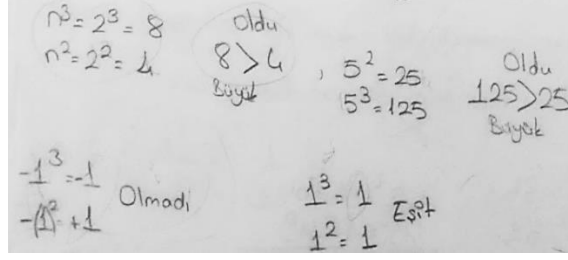 n³ = 2³ = 8
n² = 2² = 4
Oldu
8 > 4
Büyük
, 5² = 25
5³ = 125
Oldu
125 > 25
Büyük
-1³ = -1
-(1)² +1
Olmadı
1³ = 1
1² = 1
Eşit